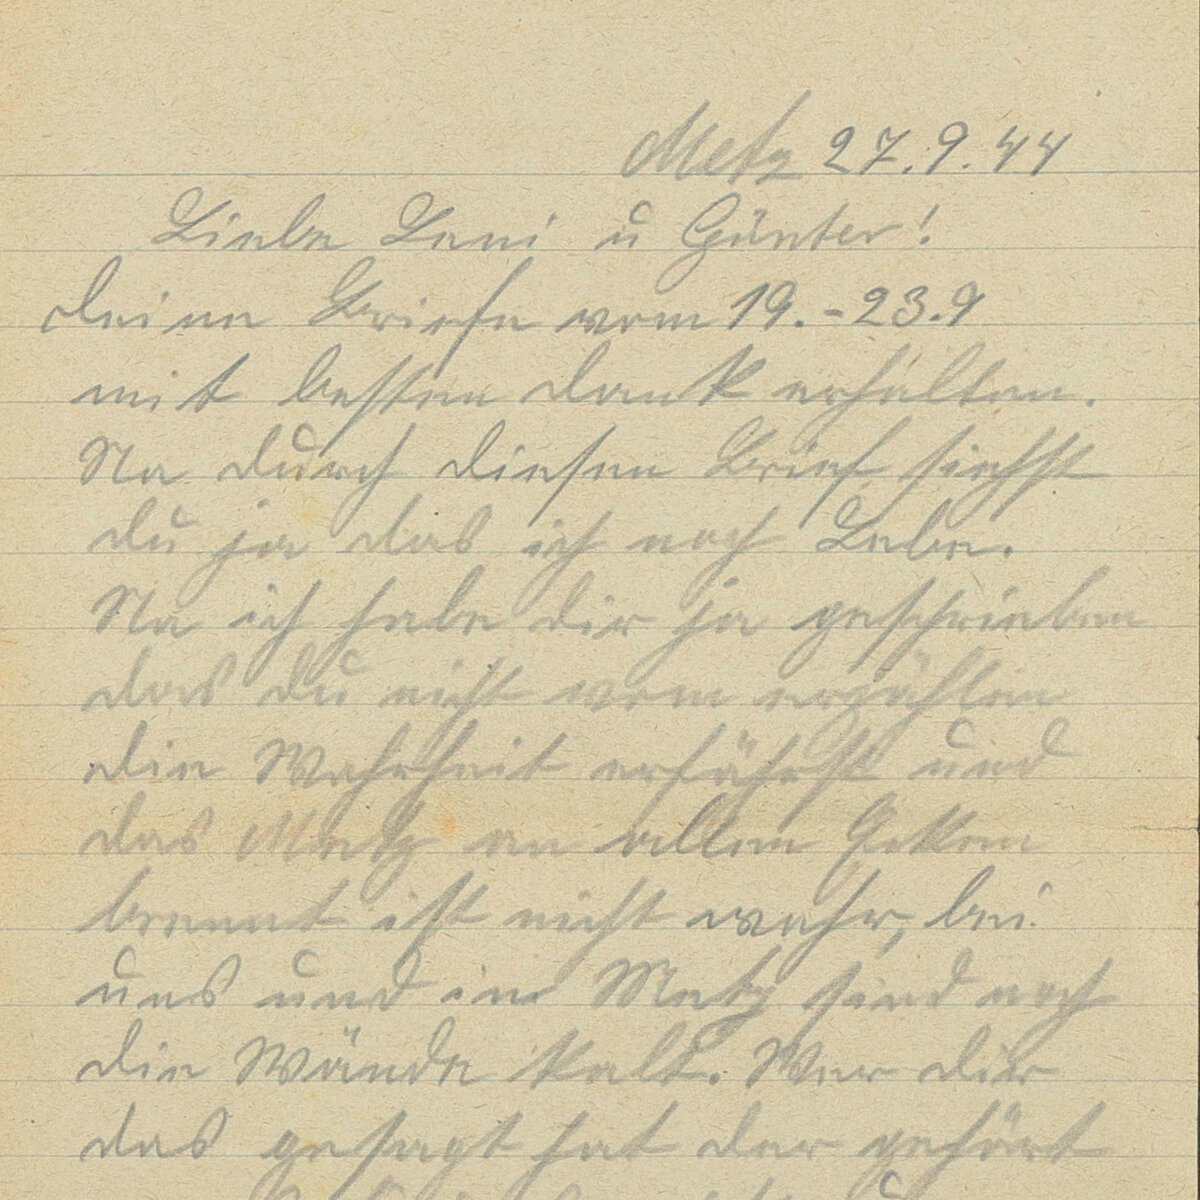 Metz 27.9.44
Liebe Leni u Günter!
deine Briefe vom 19.-23.9
mit besten dank erhalten.
Na durch diesen Brief siehst
du ja das ich noch Lebe.
Na ich habe dir ja geschrieben
das du nicht vom erzählen
die Wahrheit erfährst und
das Metz an allen Ecken
brennt ist nicht wahr, bei
uns und in Metz sind noch
die Wände kalt. Wer dir
das gesagt hat der gehört